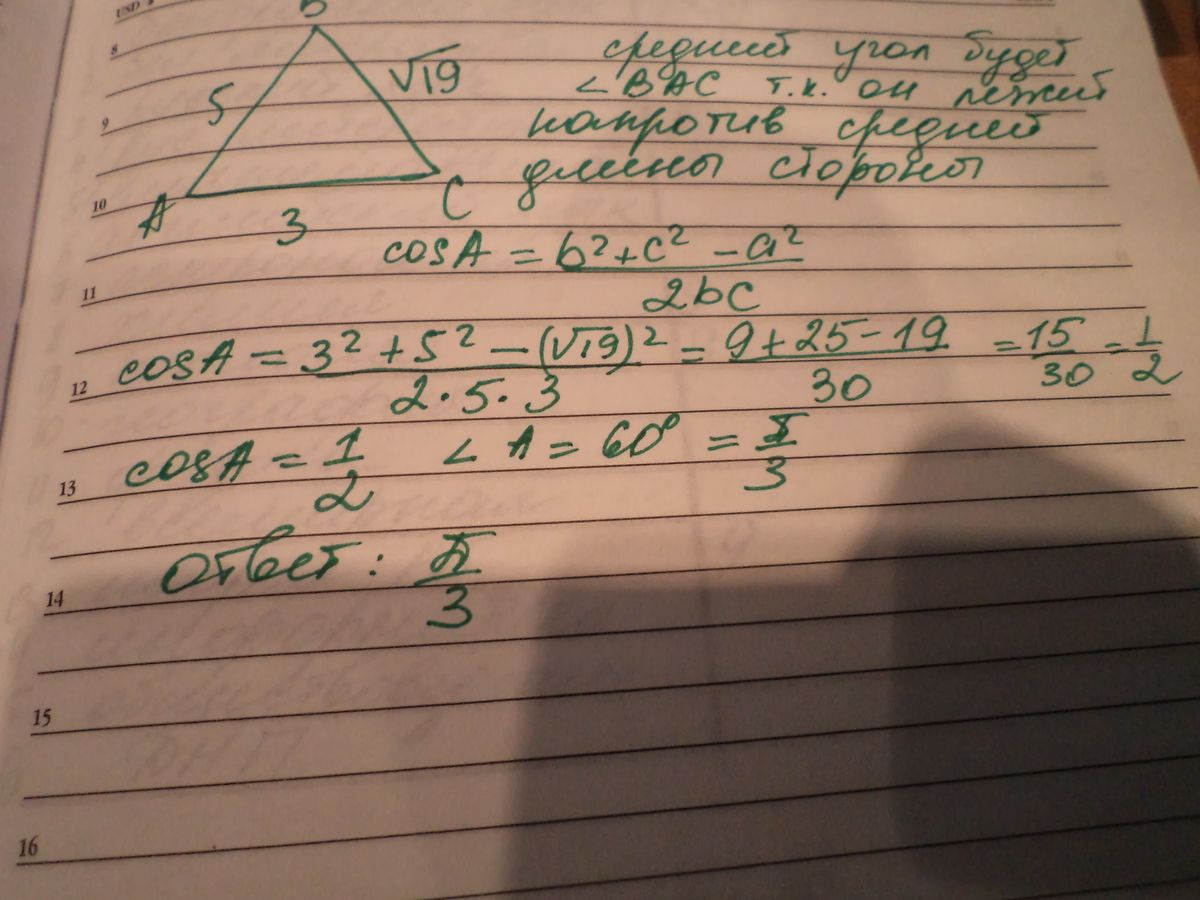 USD
B
8
средний угол будет
5
√19
∠ BAC т.к. он лежит
9
напротив средней
длины стороны
10
A
3
C
cosA = b² + c² - a² / 2bc
11
cosA = 3² + 5² - (√19)² / 2·5·3 = 9+25-19 / 30 = 15/30 = 1/2
12
cosA = 1/2 ∠ A = 60° = π/3
13
Ответ: π/3
14
15
16